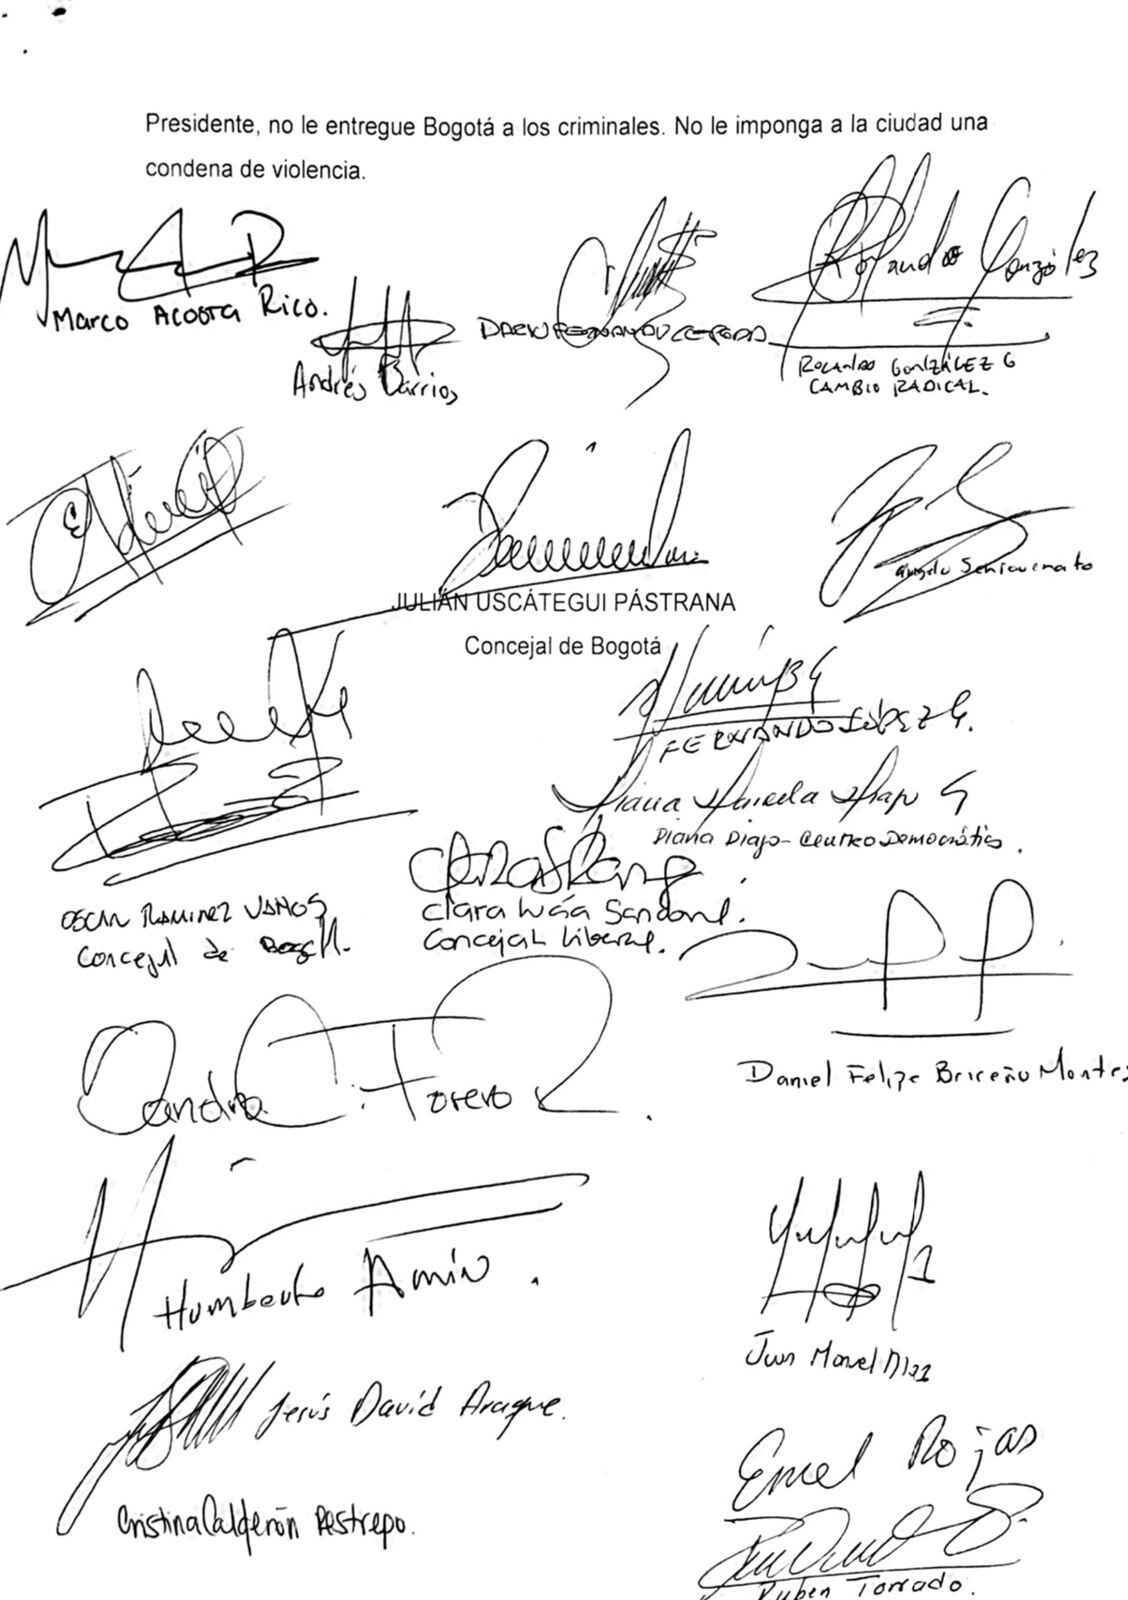 Presidente, no le entregue Bogotá a los criminales. No le imponga a la ciudad una
condena de violencia.
Rolando González
Marco Acosta Rico.
Andrés Barrios
ROLANDO GONZÁLEZ G
CAMBIO RADICAL.
JULIÁN USCÁTEGUI PÁSTRANA
Concejal de Bogotá
FERNANDO LÓPEZ G.
Diana Diago - Centro Democrático.
OSCAR RAMIREZ VAHOS
Concejal de
Clara Lucía Sandoval.
Concejal Liberal.
Daniel Felipe Briceño Montes
Sandra C. Forero R.
Humberto Amín.
Juan Manuel Diaz
Jesús David Araque.
Emel Rojas
Cristina Calderón Restrepo.
Ruben Torrado.